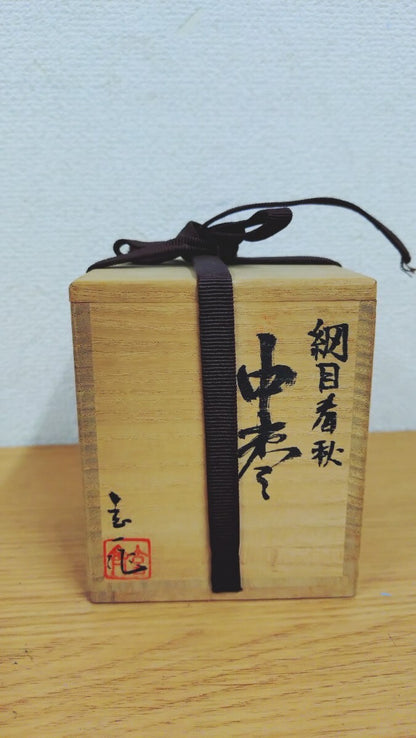 網目春秋
中棗
玄一